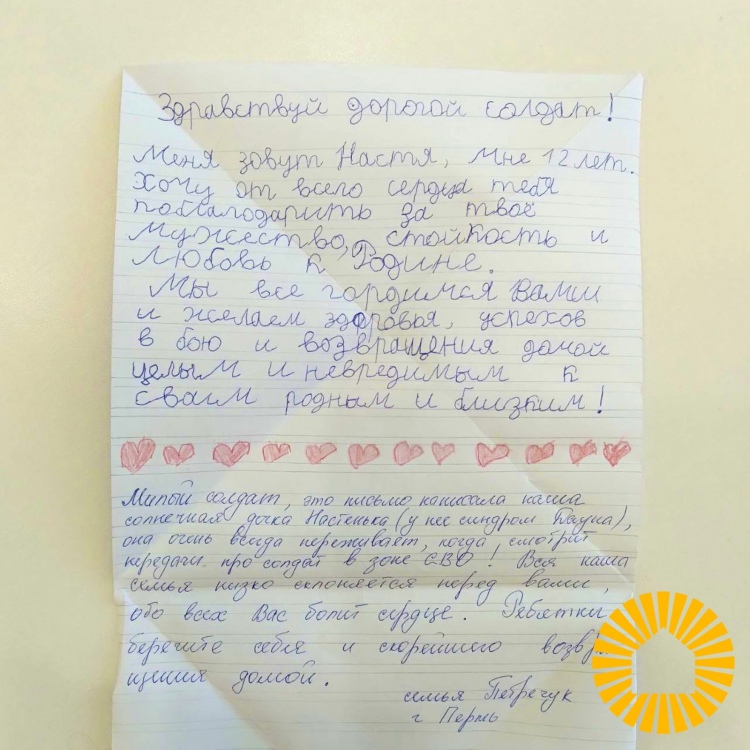 Здравствуй дорогой солдат!
Меня зовут Настя, мне 12 лет.
Хочу от всего сердца тебя
поблагодарить за твоё
мужество, стойкость и
любовь к Родине.
Мы все гордимся Вами
и желаем здоровья, успехов
в бою и возвращения домой
целым и невредимым к
сваим родным и близким!
Милый солдат, это письмо написала наша
солнечная дочка Настенька (у неё синдром Дауна),
она очень всегда переживает, когда смотрит
передачи про солдат в зоне СВО! Вся наша
семья низко склоняется перед вами,
обо всех Вас болит сердце. Ребятки
берегите себя и скорейшего возвра
щения домой.
семья Петречук
г Пермь